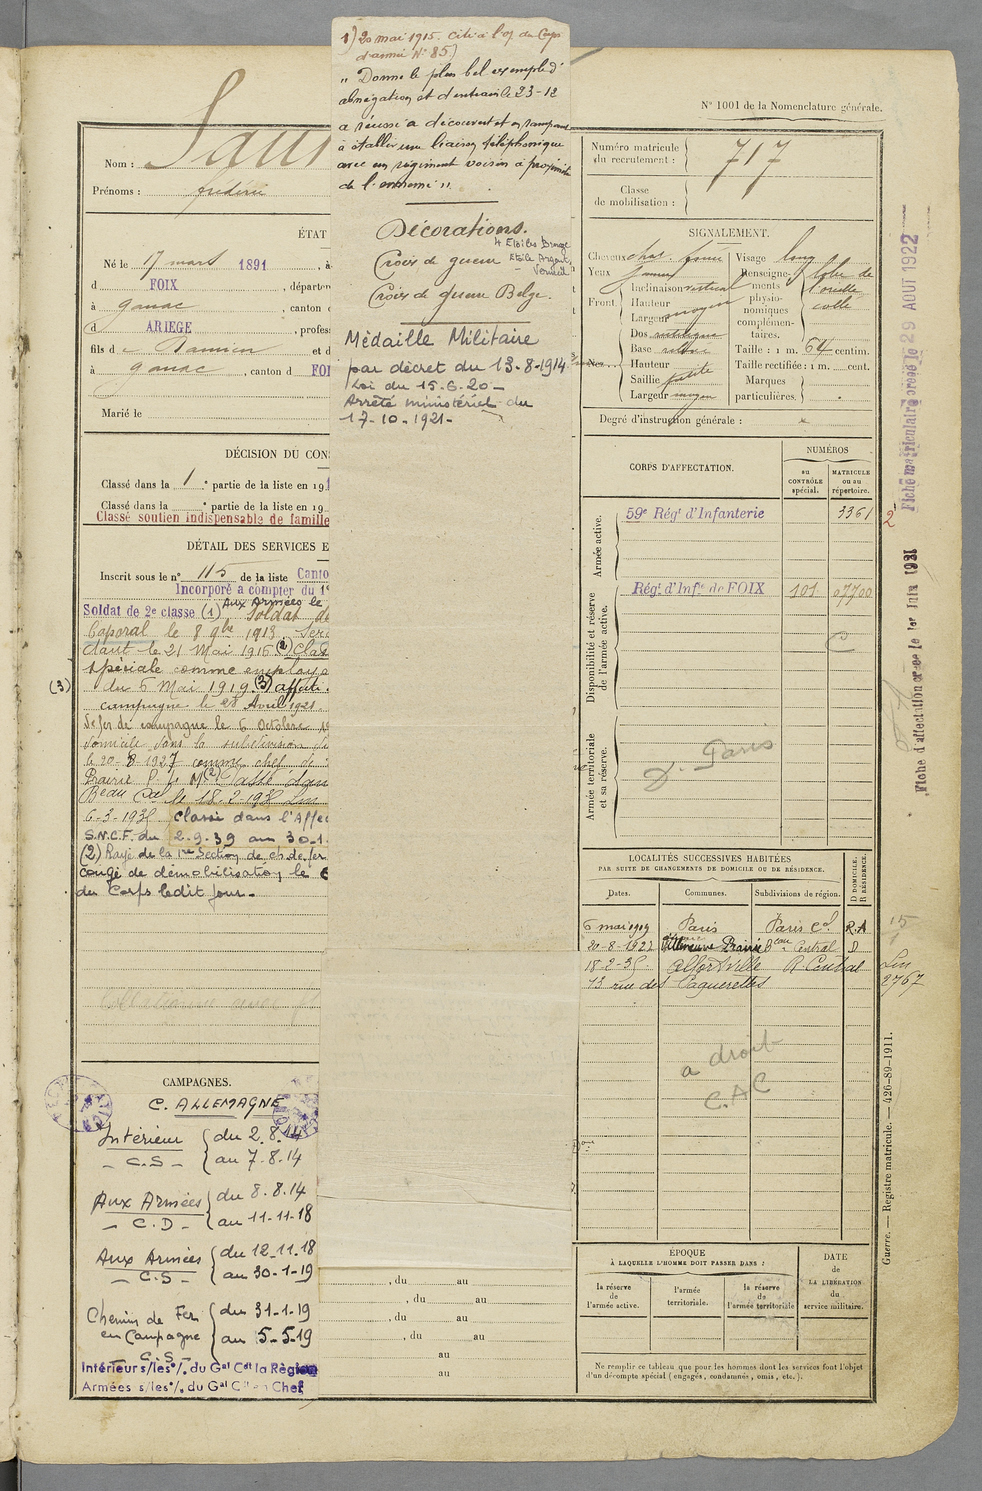 1) 20 mai 1915. Cité à l'O/ du Corps
d'armée N° 85)
" Donne le plus bel exemple d'
abnégation et d'entrain le 23-12
a réussi à découvert et en rampant
à établir une liaison téléphonique
avec un régiment voisin à proximité
de l'ennemi ".
Décorations.
4 Etoiles Bronze
Croix de guerre Etoile Argent,
Vermeil
Croix de guerre Belge.
Médaille Militaire
par décret du 13-8-1914
Loi du 15-6-20-
Arrêté ministériel du
17-10-1921-
Nom :
Prénoms : frédéric
ÉTAT
Né le 17 mars 1891, à
d FOIX, départem
à ganac, canton d
d ARIEGE, profess
fils de Damien et d
à ganac, canton d FOI
Marié le
DÉCISION DU CON
Classé dans la 1e partie de la liste en 191
Classé dans la e partie de la liste en 19
Classé soutien indispensable de famille
DÉTAIL DES SERVICES E
Inscrit sous le n° 115 de la liste Canto
Incorporé à compter du 1
Aux Armées le
Soldat de 2e classe (1) Soldat de
Caporal le 8 9bre 1913
dant le 21 Mai 1916 (2) Clas
spéciale comme employé
(3) du 6 Mai 1919 (3) affecté
campagne le 28 Avril 1921
de fer de campagne le 6 Octobre
domicile dans la subdivision de
le 20-8-1927 comme chef de
Prairie
Beau le 18-2-1935
6-3-1935 Classé dans l'Affec
S.N.C.F. du 2-9-39 au 30-1
(2) Rayé de la 1re Section de ch. de fer
congé de démobilisation le 6
du Corps ledit jour-
CAMPAGNES.
C. ALLEMAGNE
Intérieur du 2.8.14
- C.S - au 7-8-14
Aux Armées du 8.8.14
- C.D - au 11-11-18
Aux Armées du 12.11.18
- C.S - au 30-1-19
Chemin de Fer du 31-1-19
en Campagne au 5-5-19
- C.S -
Intérieur s/les °/. du Gal Cdt la Région
Armées s/les °/. du Gal Ct en Chef
, du au
, du au
, du au
, du au
au
au
N° 1001 de la Nomenclature générale.
Numéro matricule
du recrutement : 717
Classe
de mobilisation :
SIGNALEMENT.
Cheveux chat. foncé Visage long
Yeux jaunes Renseigne- lobe de
Front Inclinaison vertical ments l'oreille
Hauteur physio- collé
Largeur moyen nomiques
Dos complémen-
Base taires.
Nez Hauteur Taille : 1 m. 64 centim.
Saillie petite Taille rectifiée : 1 m. cent.
Largeur moyen Marques
particulières.
Degré d'instruction générale :
CORPS D'AFFECTATION.
NUMÉROS
au
CONTRÔLE
spécial.
MATRICULE
ou au
répertoire.
Armée active.
59e Régt d'Infanterie 3361
Disponibilité et réserve
de l'armée active.
Régt d'Infie de FOIX 101 07700
C
Armée territoriale
et sa réserve.
D. Paris
LOCALITÉS SUCCESSIVES HABITÉES
PAR SUITE DE CHANGEMENTS DE DOMICILE OU DE RÉSIDENCE.
Dates. Communes. Subdivisions de région.
D DOMICILE.
R RÉSIDENCE.
6 mai 1919 Paris Paris Cal R.A
20-8-1927 Villeneuve Prairie Beau Central D
18-2-35. Alfortville R. Central
13 rue des Paquerettes
a droit
C.A.C
ÉPOQUE
À LAQUELLE L'HOMME DOIT PASSER DANS :
la réserve
de
l'armée active.
l'armée
territoriale.
la réserve
de
l'armée territoriale
DATE
de
LA LIBÉRATION
du
service militaire.
Ne remplir ce tableau que pour les hommes dont les services font l'objet
d'un décompte spécial (engagés, condamnés, omis, etc.).
Fiche matriculaire créée le 29 AOUT 1922
2
Fiche d'affectation créée le 1er Juin 1931
15
2767
Guerre. — Registre matricule. — 426-89-1911.